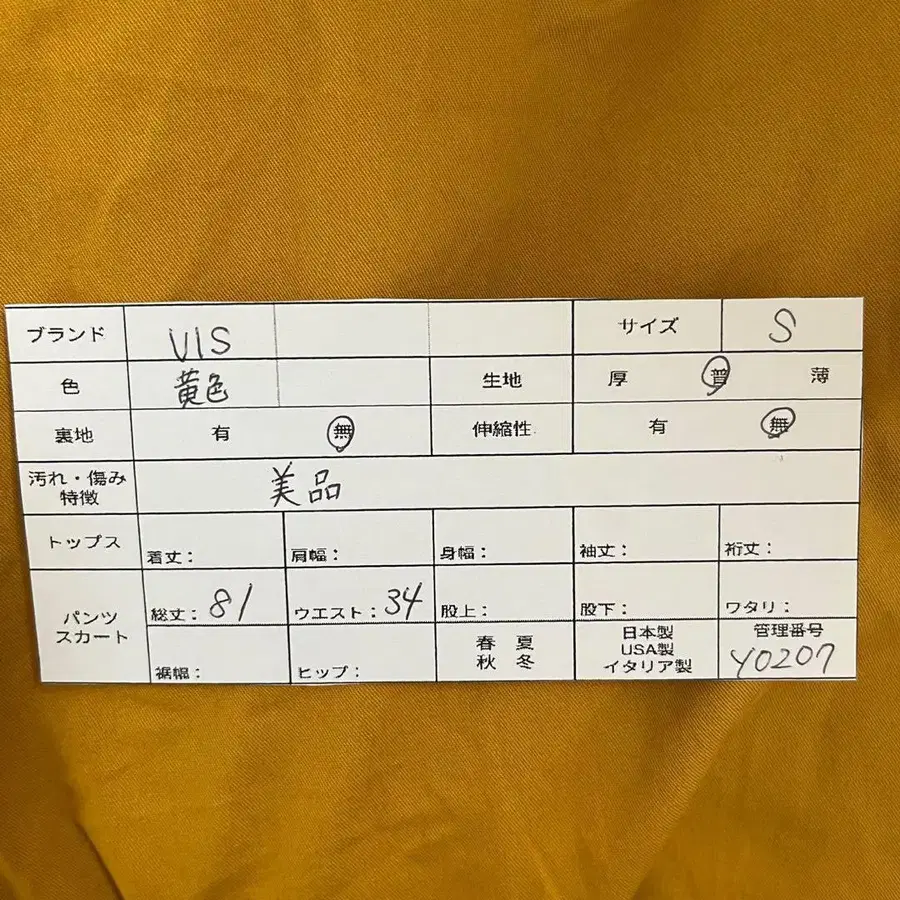 ブランド VIS サイズ S
色 黄色 生地 厚 普 薄
裏地 有 無 伸縮性 有 無
汚れ・傷み
特徴 美品
トップス 着丈： 肩幅： 身幅： 袖丈： 裄丈：
パンツ
スカート
総丈：81 ウエスト：34 股上： 股下： ワタリ：
裾幅： ヒップ：
春 夏
秋 冬
日本製
USA製
イタリア製
管理番号
Y0207